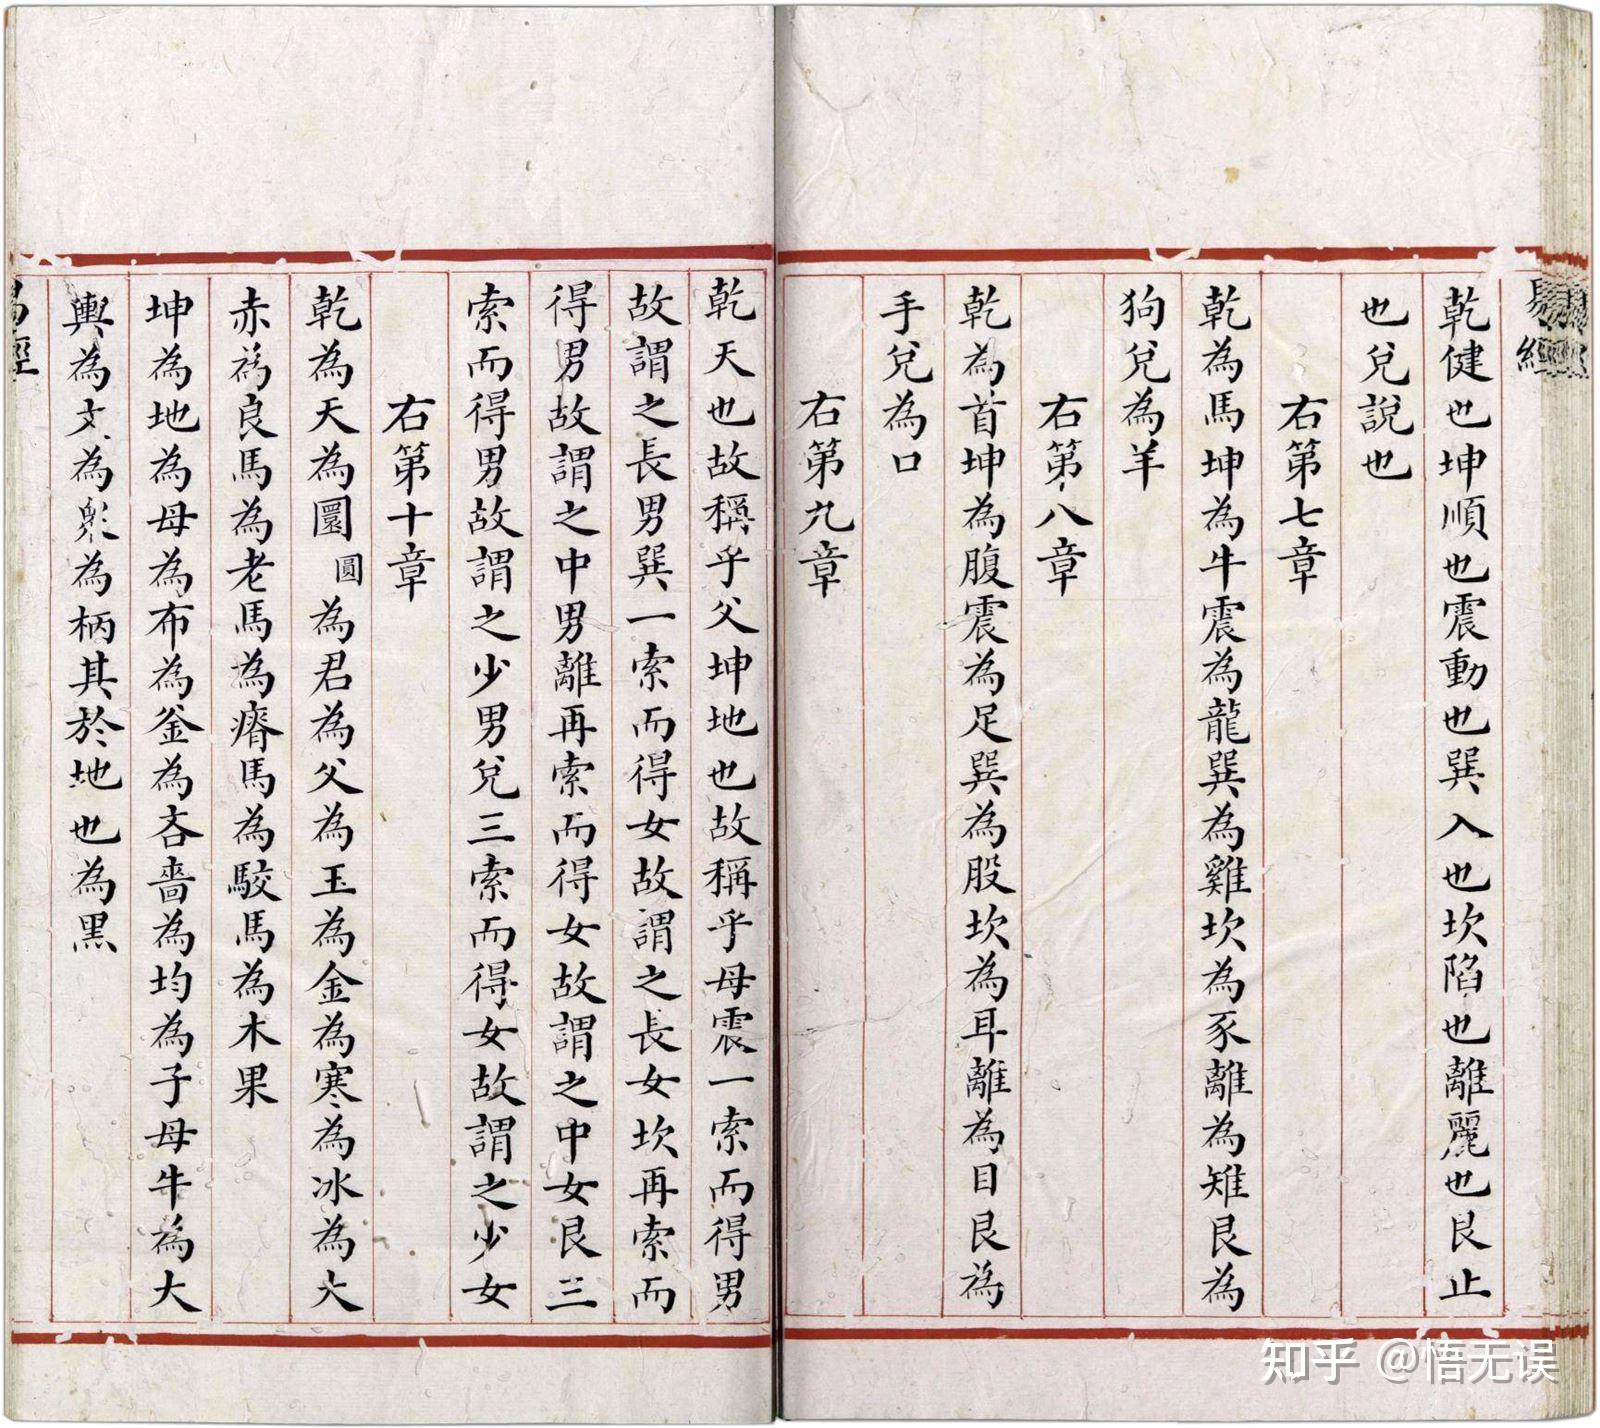 易經
乾健也坤順也震動也巽入也坎陷也離麗也艮止
也兌說也
右第七章
乾為馬坤為牛震為龍巽為雞坎為豕離為雉艮為
狗兌為羊
右第八章
乾為首坤為腹震為足巽為股坎為耳離為目艮為
手兌為口
右第九章
乾天也故稱乎父坤地也故稱乎母震一索而得男
故謂之長男巽一索而得女故謂之長女坎再索而
得男故謂之中男離再索而得女故謂之中女艮三
索而得男故謂之少男兌三索而得女故謂之少女
右第十章
乾為天為圜圓為君為父為玉為金為寒為冰為大
赤為良馬為老馬為瘠馬為駁馬為木果
坤為地為母為布為釜為吝嗇為均為子母牛為大
輿為文為眾為柄其於地也為黑
易經
知乎 @悟无误